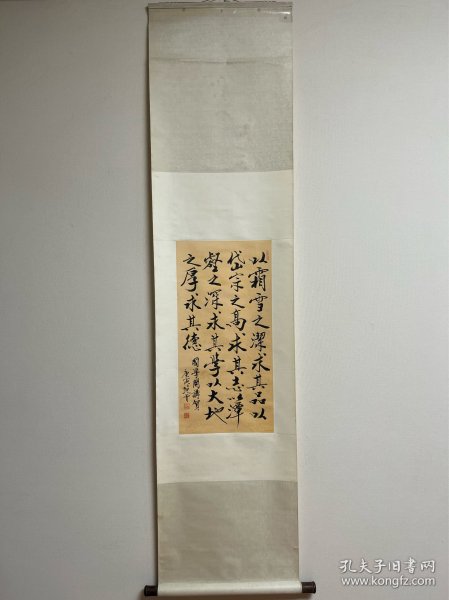 以霜雪之潔求其品以
岱宗之高求其志以潭
壑之深求其學以大地
之厚求其德
孔夫子旧书网
www.kongfz.com